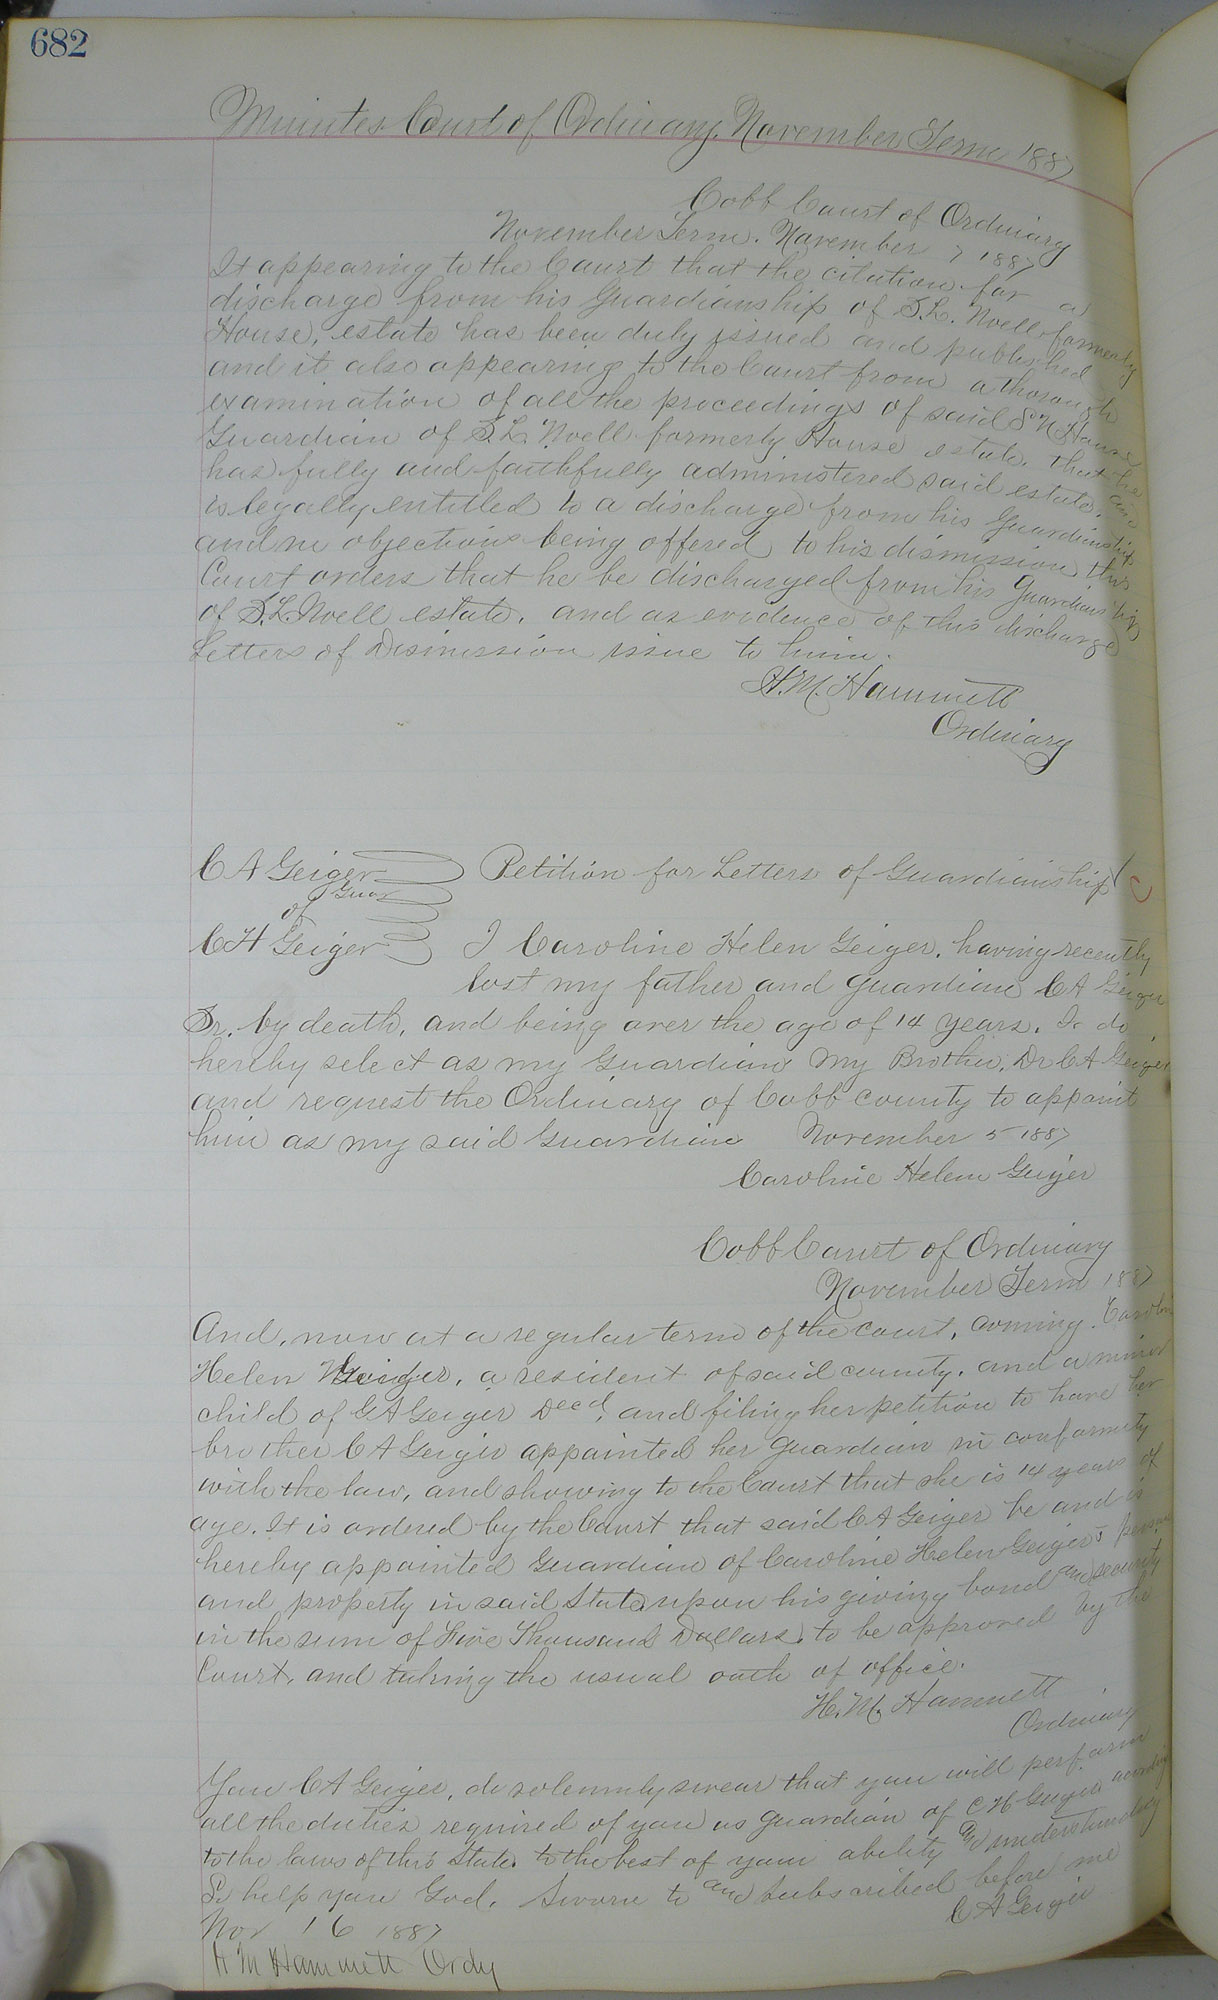 682
Minutes Court of Ordinary, November Term 1887
Cobb Court of Ordinary
November Term. November 7 1887
It appearing to the Court that the citation for a
discharge from his Guardianship of S.L. Noell formerly
House, estate has been duly issued and published
and it also appearing to the Court from a thorough
examination of all the proceedings of said S N House
Guardian of S.L. Noell formerly House estate. that he
has fully and faithfully administered said estate, and
is legally entitled to a discharge from his Guardianship
and no objections being offered to his dismission this
Court orders that he be discharged from his Guardianship
of S.L. Noell estate, and as evidence of this discharge
Letters of Dismission issue to him.
H.M. Hammett
Ordinary
C A Geiger Petition for Letters of Guardianship
Guar
of
C H Geiger I Caroline Helen Geiger, having recently
lost my father and guardian C A Geiger
Sr. by death, and being over the age of 14 years. I do
hereby select as my Guardian my Brother, Dr C A Geiger
and request the Ordinary of Cobb county to appoint
him as my said Guardian November 5 1887
Caroline Helen Geiger
Cobb Court of Ordinary
November Term 1887
And, now at a regular term of the court, coming. Caroline
Helen Geiger, a resident of said county, and a minor
child of C A Geiger Decd, and filing her petition to have her
brother C A Geiger appointed her guardian in conformity
with the law, and showing to the Court that she is 14 years of
age. It is ordered by the Court that said C A Geiger be and is
hereby appointed Guardian of Caroline Helen Geiger's person
and property in said State upon his giving bond and security
in the sum of Five Thousand Dollars, to be approved by the
Court, and taking the usual oath of office.
H. M. Hammett
Ordinary
You C A Geiger, do solemnly swear that you will perform
all the duties required of you as guardian of C H Geiger according
to the laws of this State. to the best of your ability and understanding
So help you God. Sworn to and subscribed before me
C A Geiger
Nov 16 1887
H M Hammett Ordy